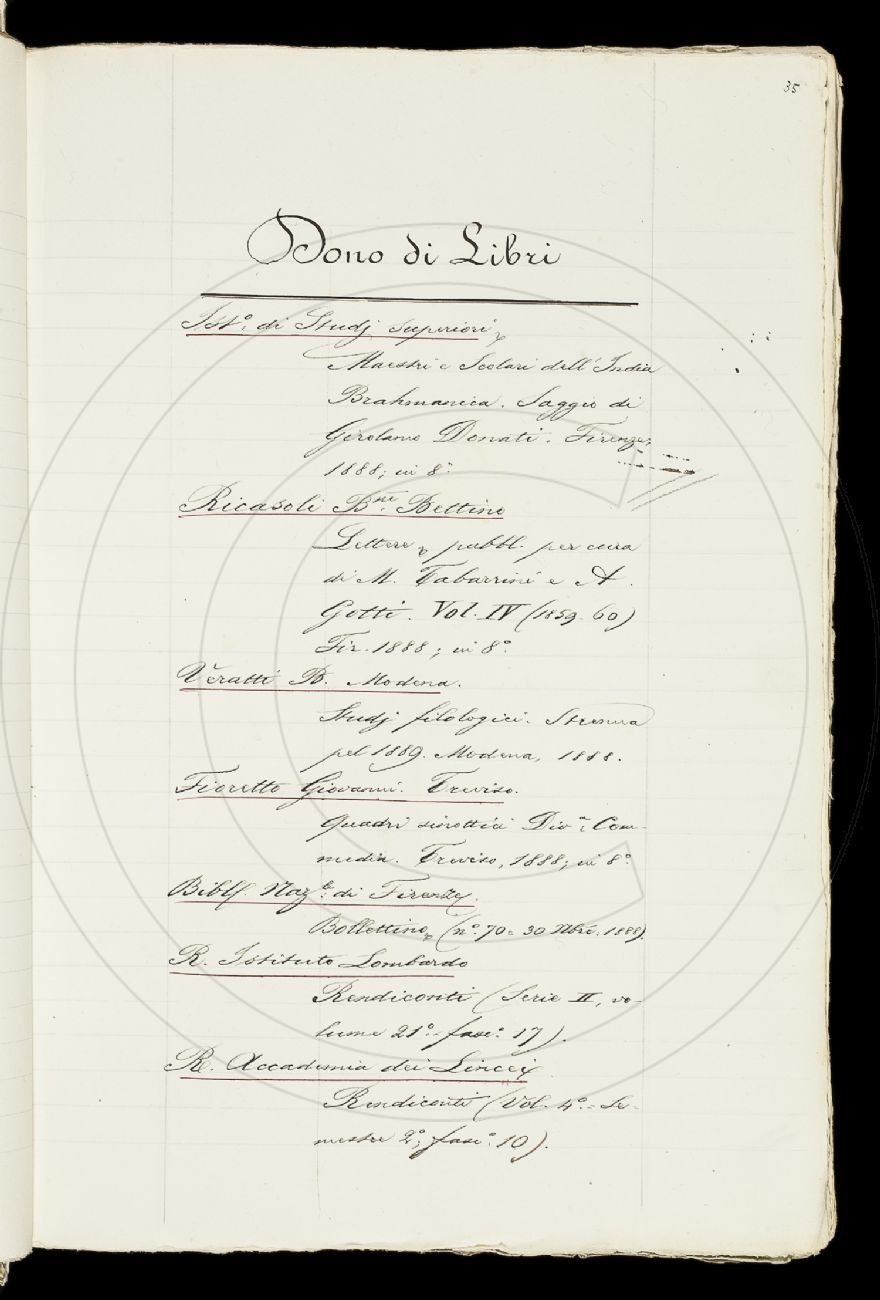 35
Dono di Libri
Ist.º di Studj superiori
Maestri e Scolari dell'India
Brahmanica. Saggio di
Gerolamo Donati. Firenze,
1888; in 8º
Ricasoli B.ne Bettino
Lettere, pubbl. per cura
di M. Tabarrini e A.
Gotti. Vol. IV (1859-60)
Fir. 1888; in 8º
Veratti B. Modena.
Studj filologici. Strenna
pel 1889. Modena, 1888.
Fioretto Giovanni. Treviso.
Quadri sinottici Div.ª Com-
media. Treviso, 1888; in 8º
Bibl. Naz.le di Firenze
Bollettino (nº 70 = 30 Nbre. 1888).
R. Istituto Lombardo
Rendiconti (Serie II, vo-
lume 21º - fascº 17).
R. Accademia dei Lincei
Rendiconti (Vol. 4º = Se-
mestre 2º; fascº 10).